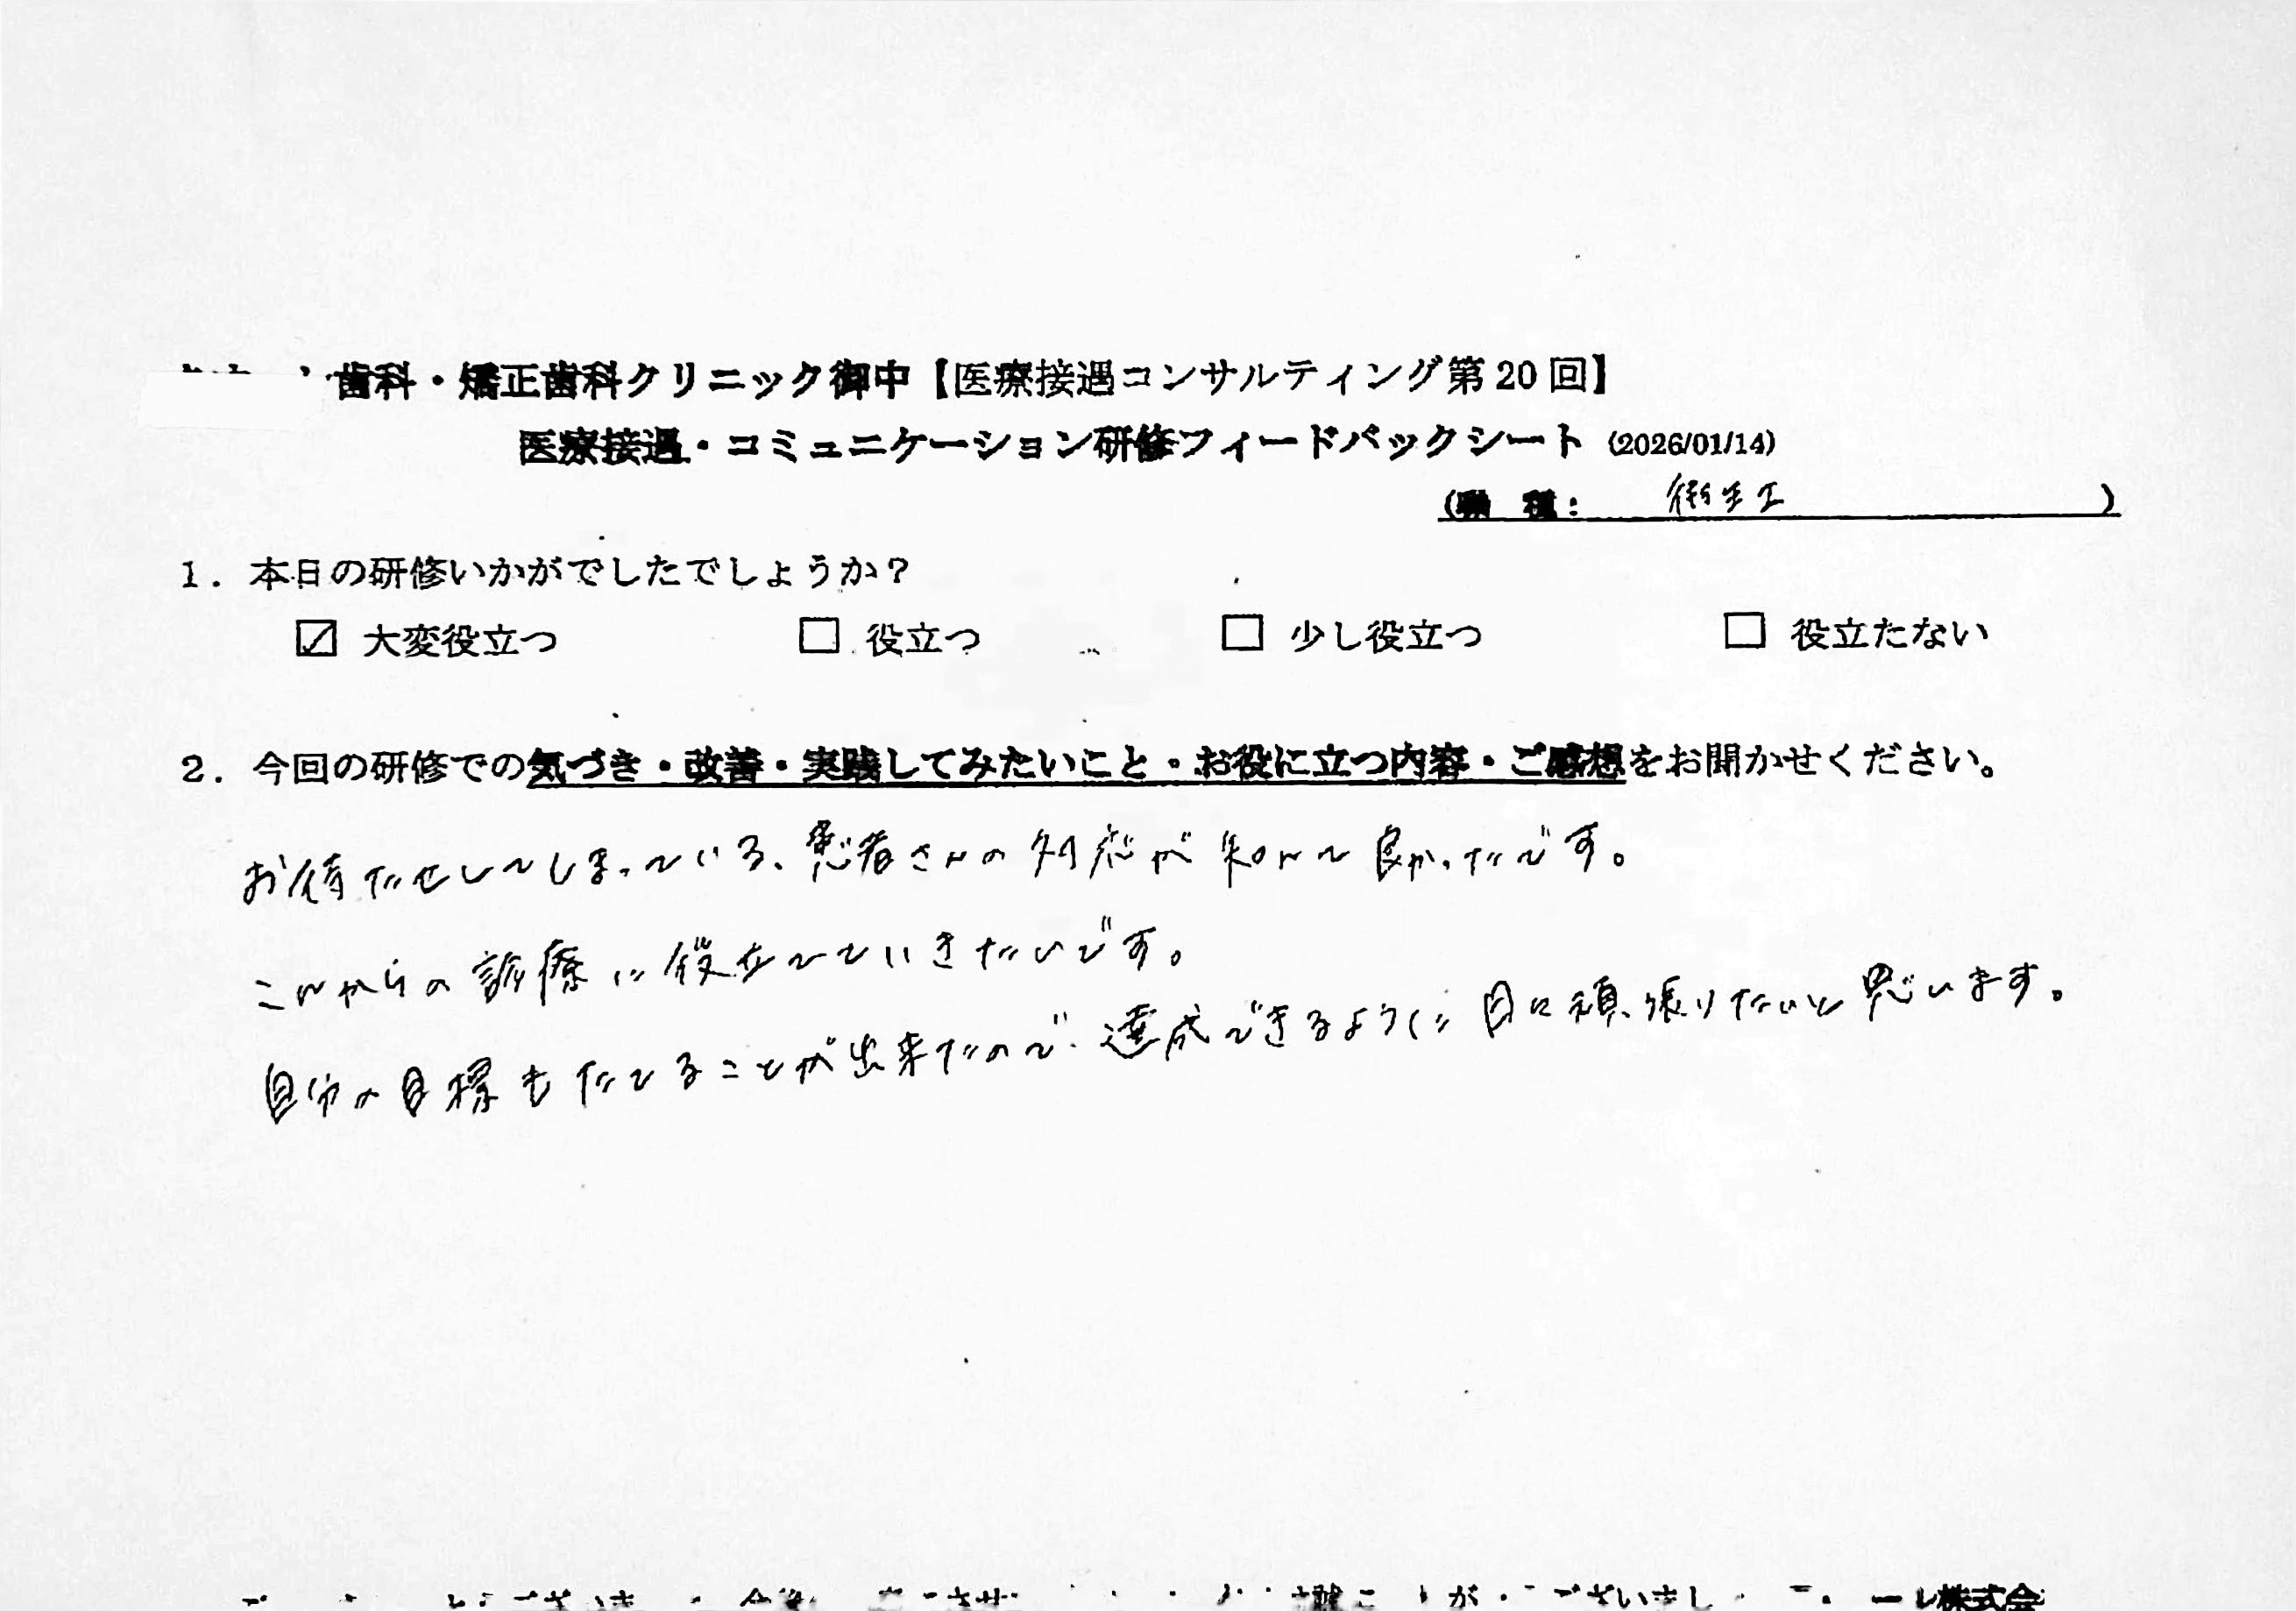 歯科・矯正歯科クリニック御中【医療接遇コンサルティング第20回】
医療接遇・コミュニケーション研修フィードバックシート (2026/01/14)
(職 種: 衛生士 )
1. 本日の研修いかがでしたでしょうか?
☑ 大変役立つ □ 役立つ □ 少し役立つ □ 役立たない
2. 今回の研修での気づき・改善・実践してみたいこと・お役に立つ内容・ご感想をお聞かせください。
お待たせしてしまっている、患者さんの対応が知れて良かったです。
これからの診療に役立てていきたいです。
自分の目標もたてることが出来たので、達成できるように日々頑張りたいと思います。
株式会